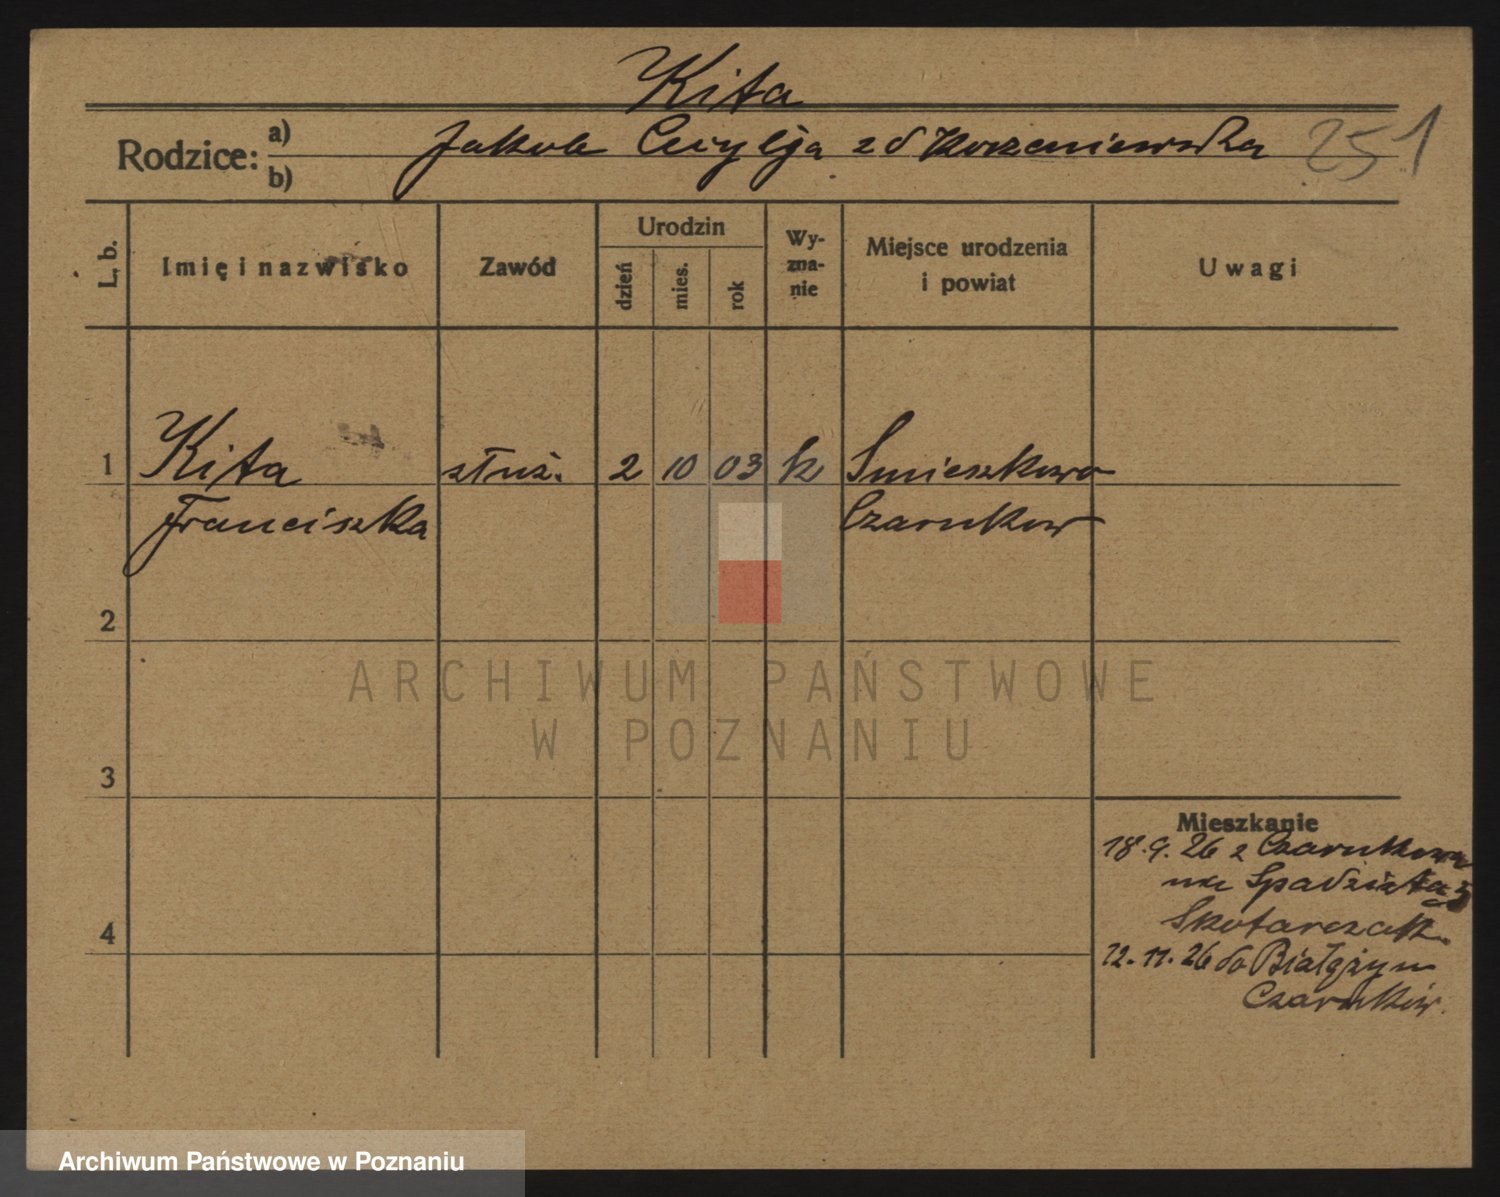 Kita
Rodzice: a) b) Jakob Cecylja z d Korzeniewska 251
L. b. Imię i nazwisko Zawód Urodzin dzień mies. rok Wyznanie Miejsce urodzenia i powiat Uwagi
1 Kita służ. 2 10 03 k Smieszkowo
Franciszka Czarnkow
2
ARCHIWUM PAŃSTWOWE
W POZNANIU
3
Mieszkanie
18.9.26 z Czarnkowa
na Spadziata 5
4 Skotarczak
12.11.26 do Białężyn
Czarnków.
Archiwum Państwowe w Poznaniu